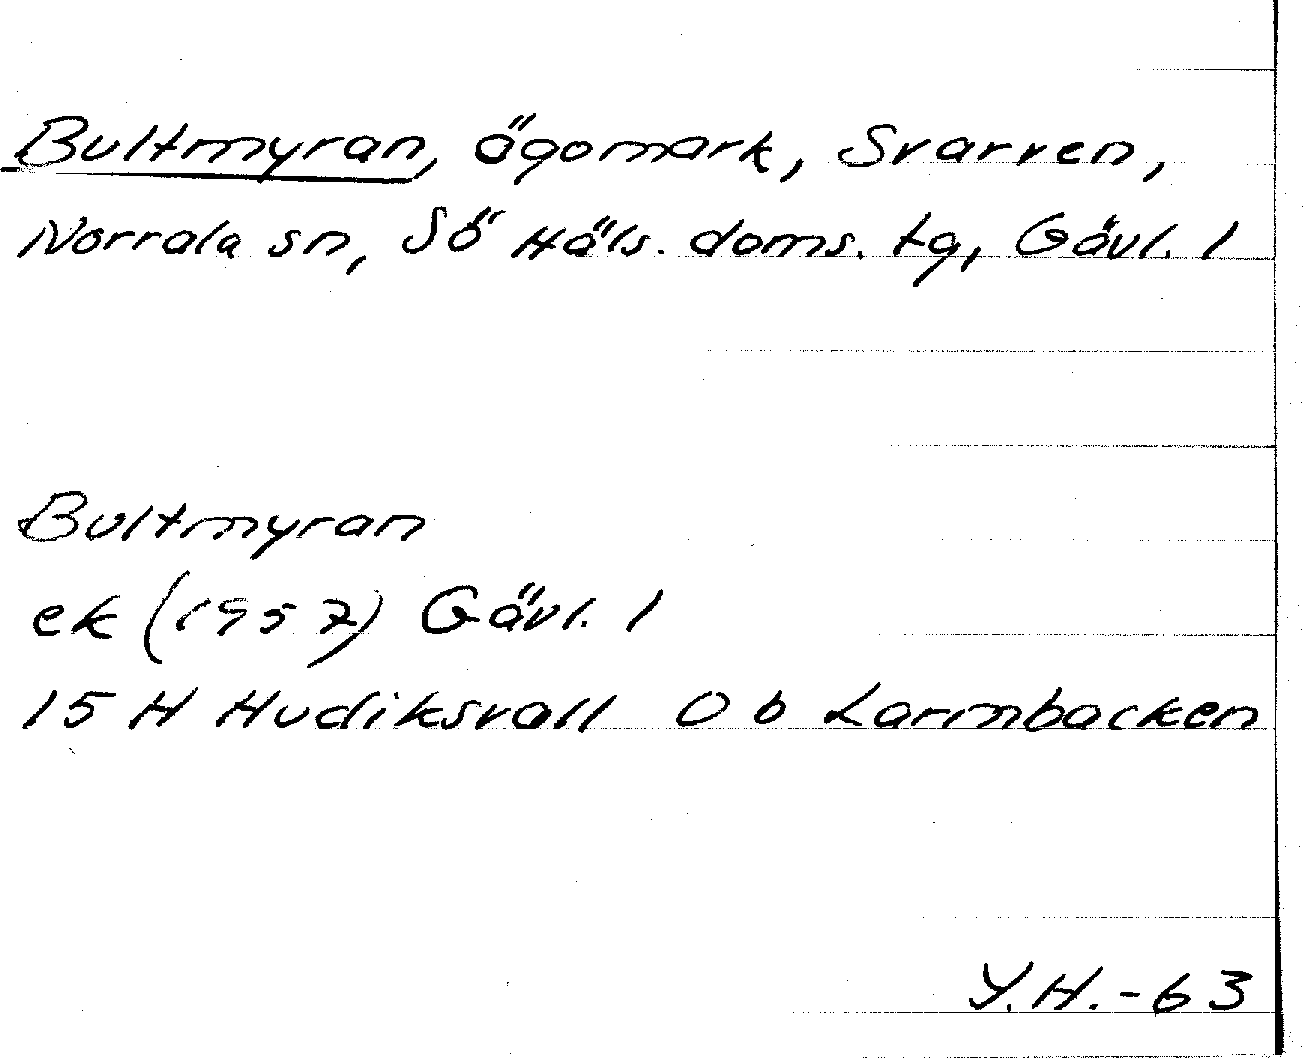 Bultmyran, ägomark, Svarven,
Norrala sn, Sö Häls. doms. tg, Gävl. l
Bultmyran
ek (1957) Gävl. l
15 H Hudiksvall O b Larmbacken
Y.H.-63